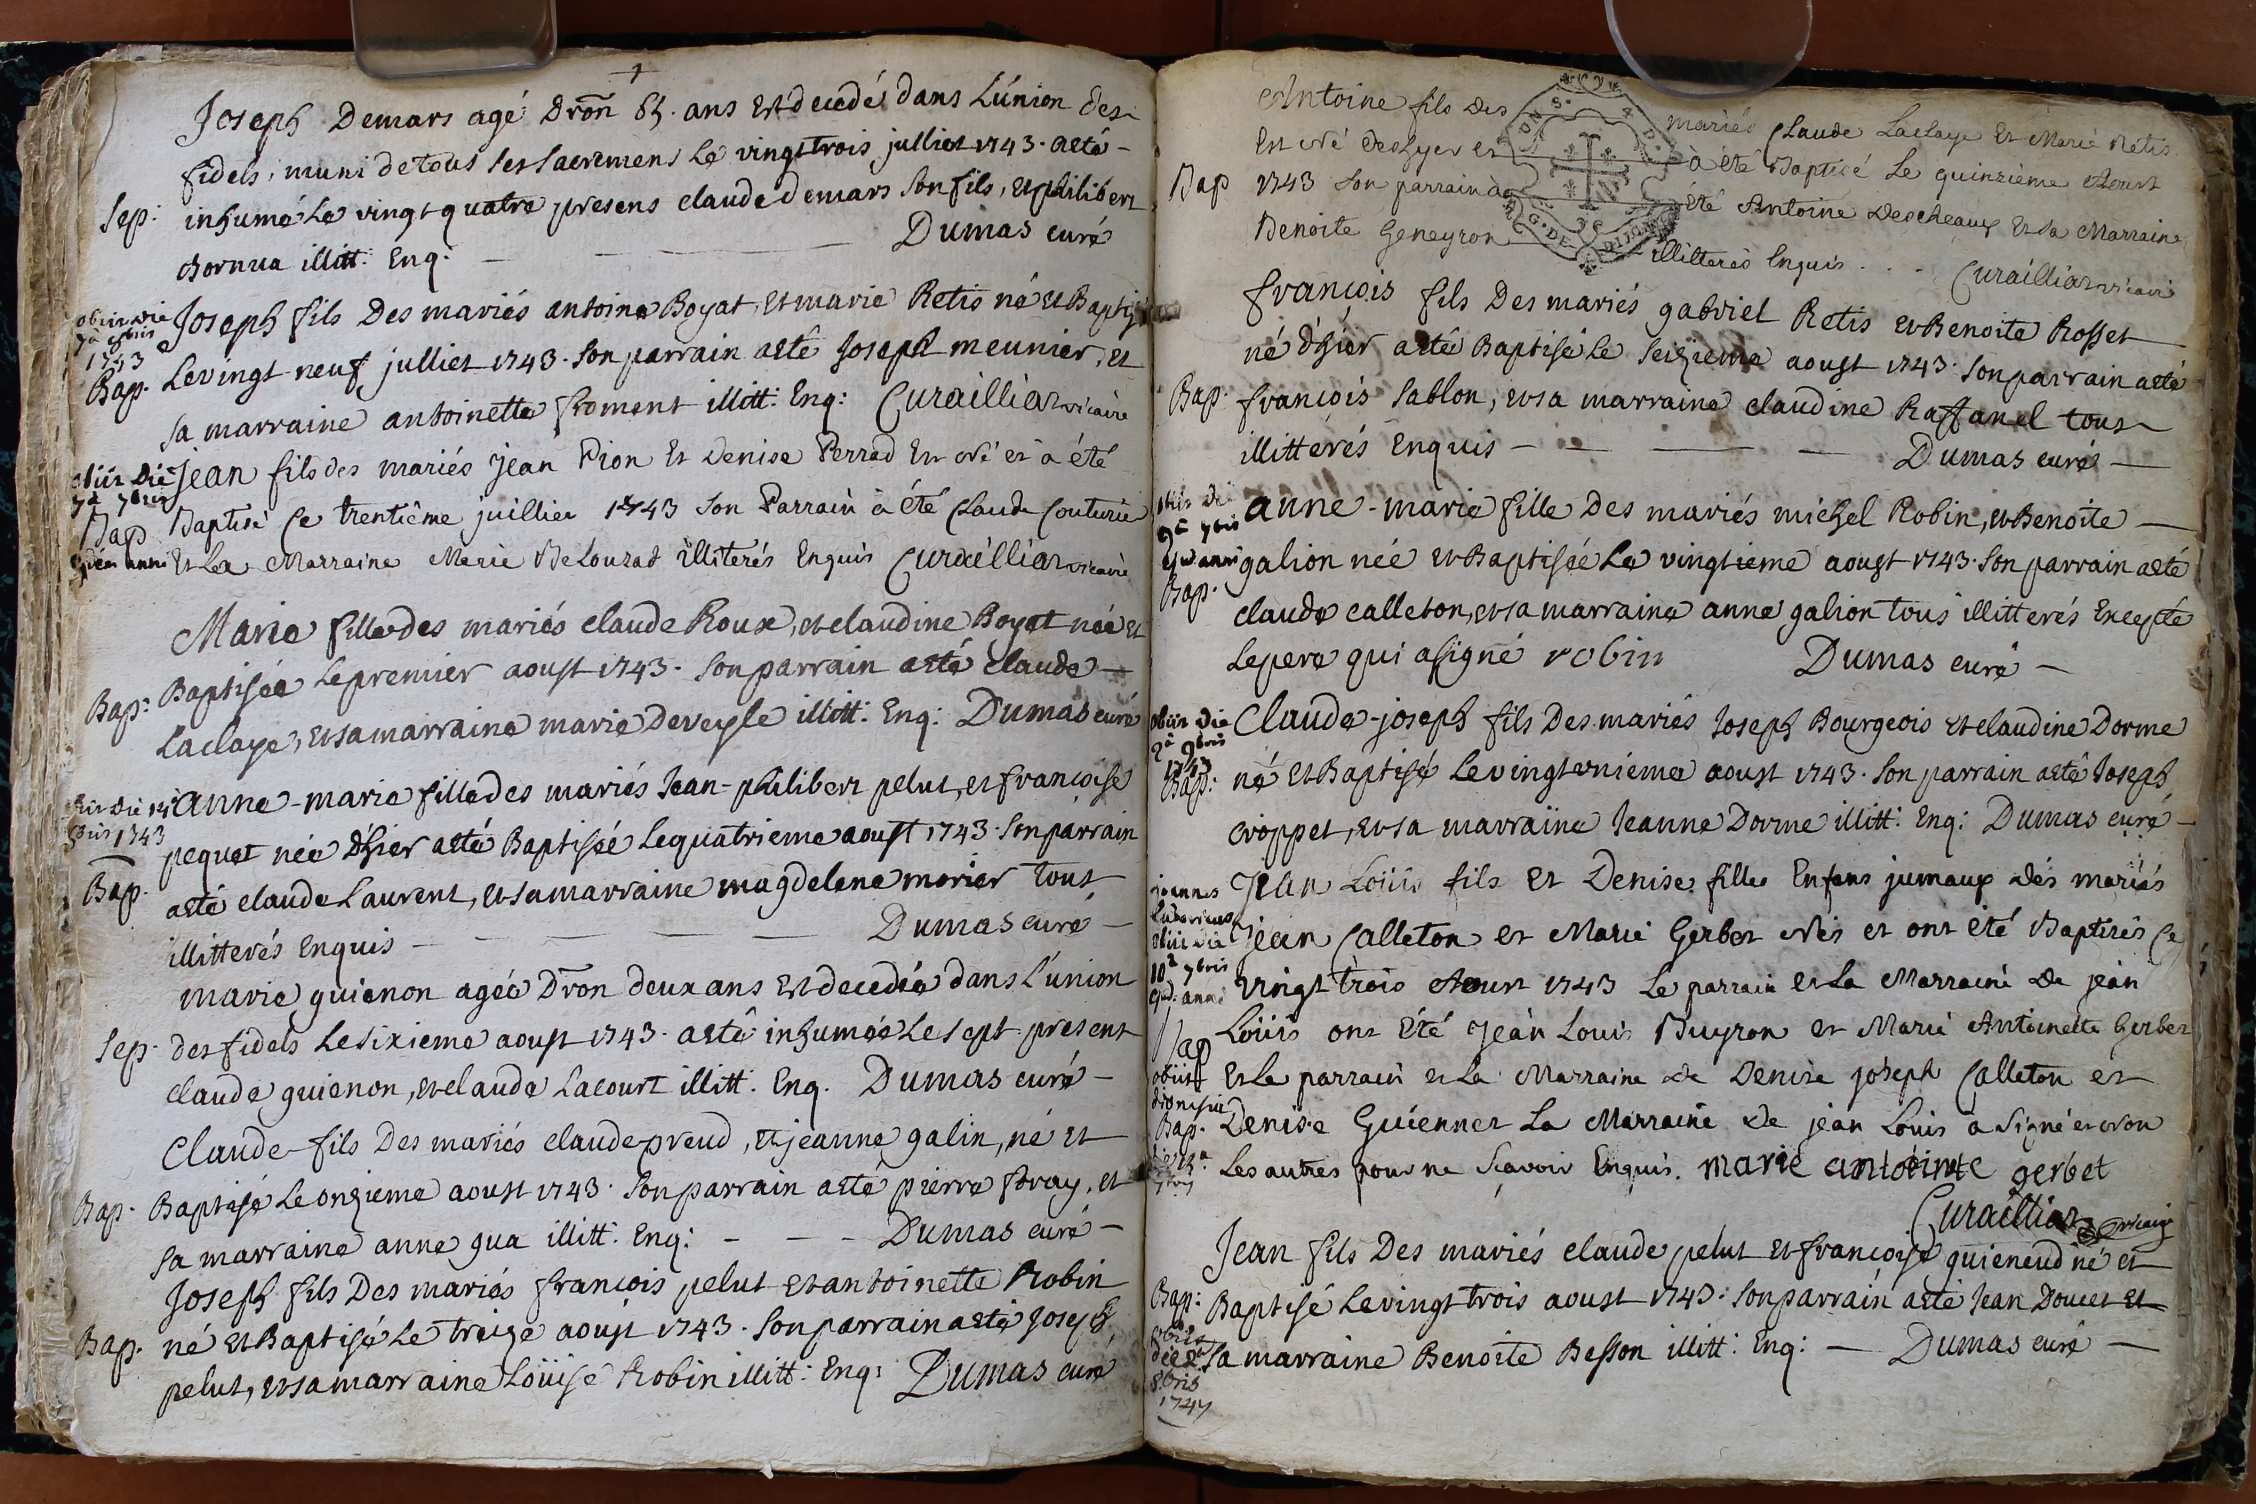 Joseph Demars agé Dron 65. ans Est decedé dans L'union des
fidels, muni de tous ses sacremens Le vingt trois julliet 1743. aeté
Sep: inhumé Le vingt quatre presens claude demars son fils, et philibert
Bornua illitt: Enq: Dumas curé
obiit die Joseph fils Des mariés antoine Boyat, et marie Retis né et Baptisé
7a 8bris
1743
Bap. Le vingt-neuf julliet 1743. son parrain aeté Joseph meunier, et
sa marraine antoinette froment illitt: Enq: Curaillia vicaire
obiit Die jean fils des mariés jean Pion Et Denise Perrad Est Né et à été
7a 7bris
Bap Baptisé Ce trentiême juillier 1743 Son Parrain à été Claude Couturie
ejdem anni Et La Marraine Marie Delouzat illiterés Enquis Curaillia vicaire
Marie fille des mariés claude Roux, et claudine Boyat née et
Bap: Baptisée Le premier aoust 1743. son parrain aeté claude
Laclaye, et sa marraine marie Deveyle illitt: Enq: Dumas curé
obiit die 14a anne-marie fille des mariés Jean-philibert pelut, et françoise
8bris 1743 pequet née d'hier aeté Baptisée Le quatrieme aoust 1743. son parrain
Bap. aeté claude Laurent, et sa marraine magdelene morier tous
illitterés Enquis Dumas curé
marie guienon agée Dron deux ans Est decedée dans L'union
Sep. des fidels Le sixieme aoust 1743. aeté inhumée Le sept present
claude guienon, et claude Lacourt illitt: Enq. Dumas curé
Claude fils Des mariés claude preud, et jeanne galin, né et
Bap. Baptisé Le onzieme aoust 1743. son parrain aeté pierre foray, et
sa marraine anne gua illitt: Enq: Dumas curé
Joseph fils Des mariés françois pelut et antoinette Robin
Bap. né et Baptisé Le treize aoust 1743. son parrain aeté Joseph
pelut, et sa marraine Loüise Robin illitt: Enq: Dumas curé
Antoine fils des mariés Claude Laclaye Et Marie Retis
Est Né d'hyer et à été Baptisé Le quinziéme Aoust
Bap 1743 Son parrain à été Antoine Descheaux Et Sa Marraine
Benoite Geneyron illitterés Enquis Curaillia vicaire
G. DE DIJON
françois fils Des mariés gabriel Retis et Benoite Rosset
né d'hier aeté Baptisé Le seizieme aoust 1743. son parrain aeté
Bap. françois Sablon, et sa marraine claudine Raffanel tous
illitterés Enquis Dumas curé
obiit die anne-marie fille Des mariés michel Robin, et Benoite
9a 7bris
ejusd. anni galion née et Baptisée Le vingtieme aoust 1743. son parrain aeté
Bap. claude calleton, et sa marraine anne galion tous illitterés Excepté
Le pere qui a signé robin Dumas curé
obiit die Claude-joseph fils Des mariés Joseph Bourgeois et claudine Dorme
2a 9bris
1743
Bap: né et Baptisé Le vingt unieme aoust 1743. son parrain aeté Joseph
croppet, et sa marraine Jeanne Dorme illitt: Enq: Dumas curé
joannes Jean Loüis fils Et Denise fille Enfans jumaux dés mariés
Ludovicus
obiit die Jean Calleton et Marie Gerbet Nés et ont été Baptisés Ce
10a 7bris
ejusd. anni vingt trois Aoust 1743 Le parrain et La Marraine De jean
Bap Loüis ont Été Jean Louis Buyron et Marie Antoinette Gerbet
obiit Et Le parrain et La Marraine De Denise joseph Calleton et
dionisia
Bap. Denise Guiennet La Marraine De jean Loüis a Signé et non
Les autres pour ne Sçavoir Enquis. marie antoinete gerbet
Curaillia vicaire
Jean fils Des mariés claude pelut et françoise guieneud né et
Bap: Baptisé Le vingt trois aoust 1743. son parrain aeté Jean Doucet et
obiit
die 2a sa marraine Benoite Besson illitt: Enq: Dumas curé
8bris
1747